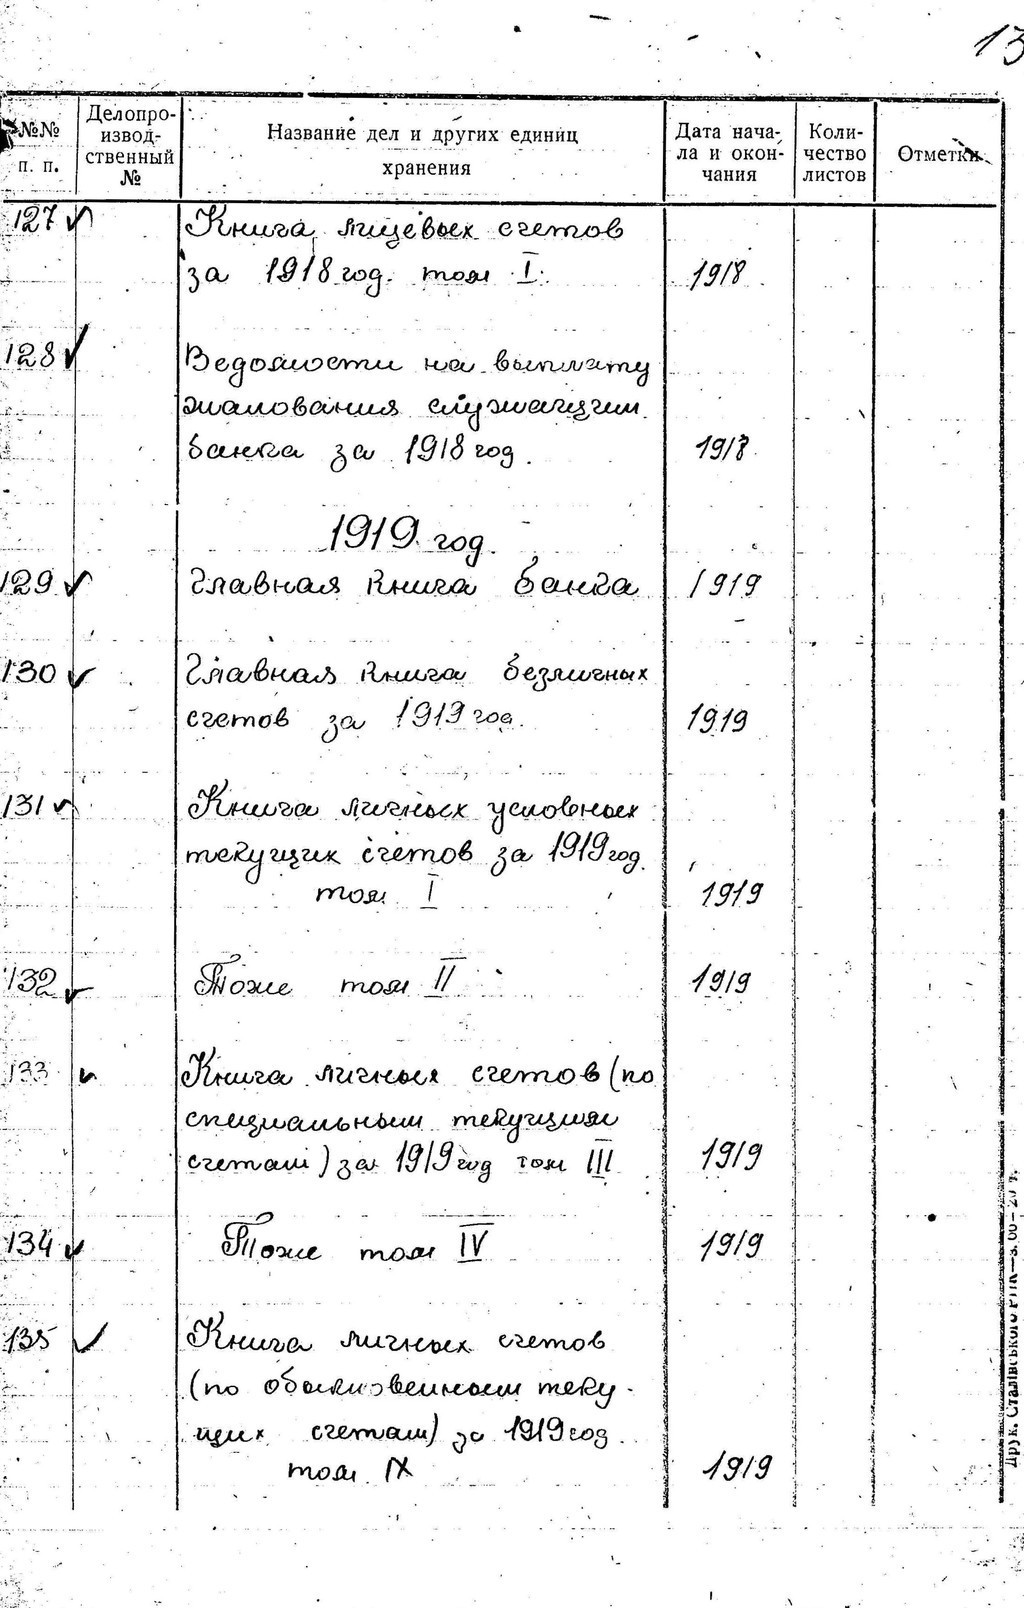 13
№№ п. п.
Делопро-
извод-
ственный
№
Название дел и других единиц
хранения
Дата нача-
ла и окон-
чания
Коли-
чество
листов
Отметки
127 Книга лицевых счетов
за 1918 год. том I. 1918
128 Ведомости на выплату
жалования служащим
банка за 1918 год. 1918
1919 год.
129 Главная книга банка 1919
130 Главная книга безличных
счетов за 1919 год. 1919
131 Книга личных условных
текущих счетов за 1919 год.
том I 1919
132 Тоже том II 1919
133 Книга личных счетов (по
специальным текущим
счетам) за 1919 год том III 1919
134 Тоже том IV 1919
135 Книга личных счетов
(по обыкновенным теку-
щих счетам) за 1919 год.
том IX 1919
Друк. Сталівського РПК